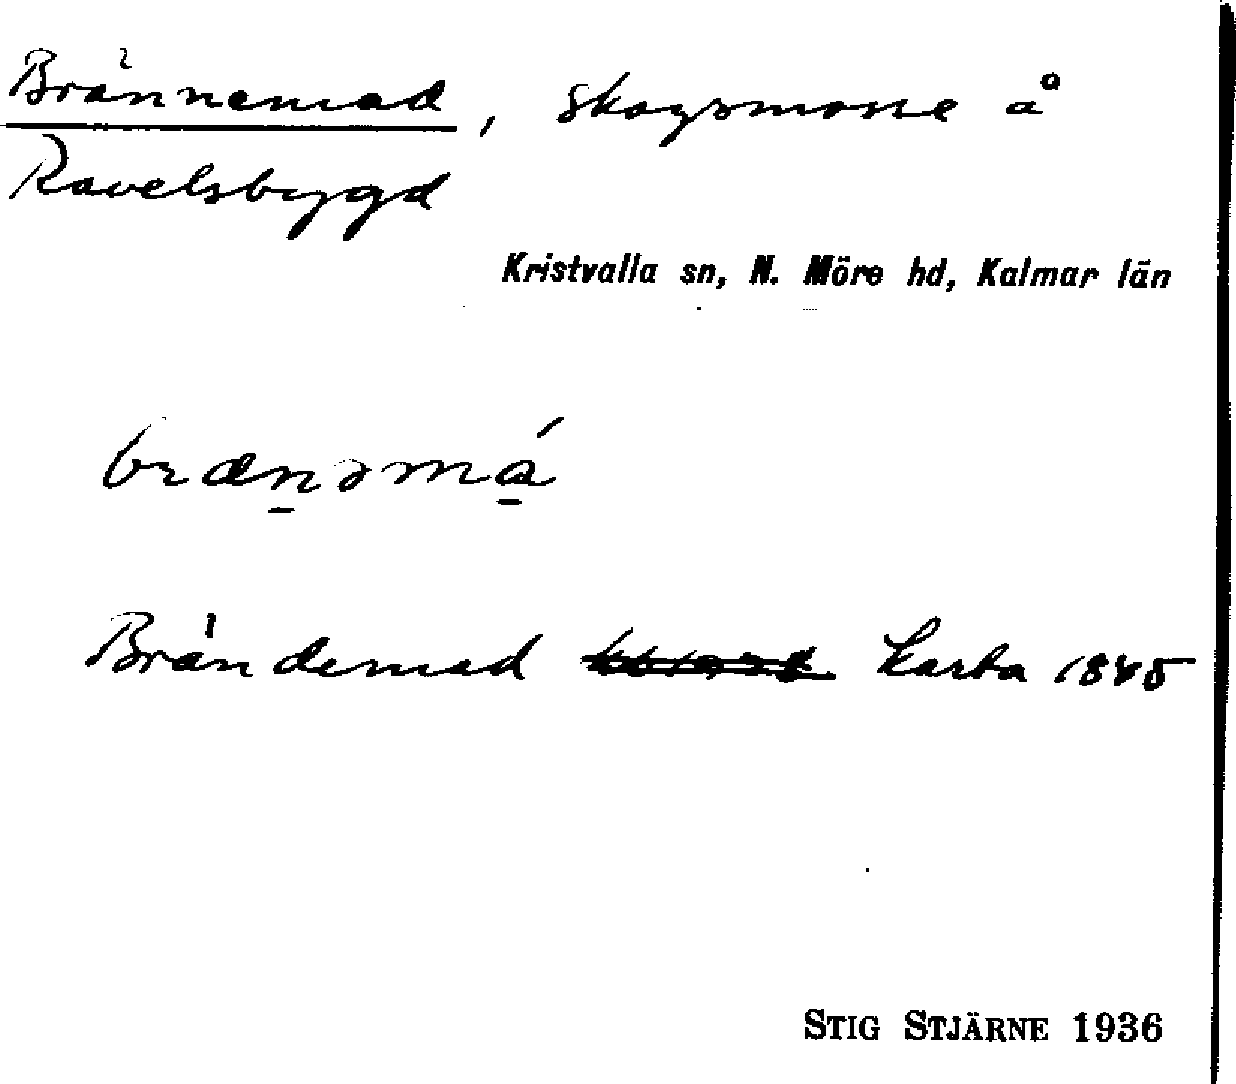 Brännemad, skogsmosse å
Ravelsbygd
Kristvalla sn, N. Möre hd, Kalmar län
brænəmá
Brändemad Karta 1845
STIG STJÄRNE 1936